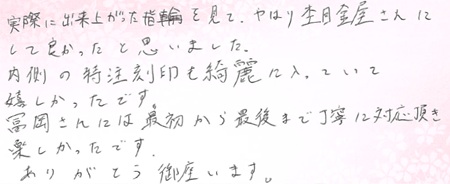 実際に出来上がった指輪を見て、やはり杢目金屋さんに
して良かったと思いました。
内側の特注刻印も綺麗に入っていて
嬉しかったです。
冨岡さんには最初から最後まで丁寧に対応頂き
楽しかったです。
ありがとう御座います。